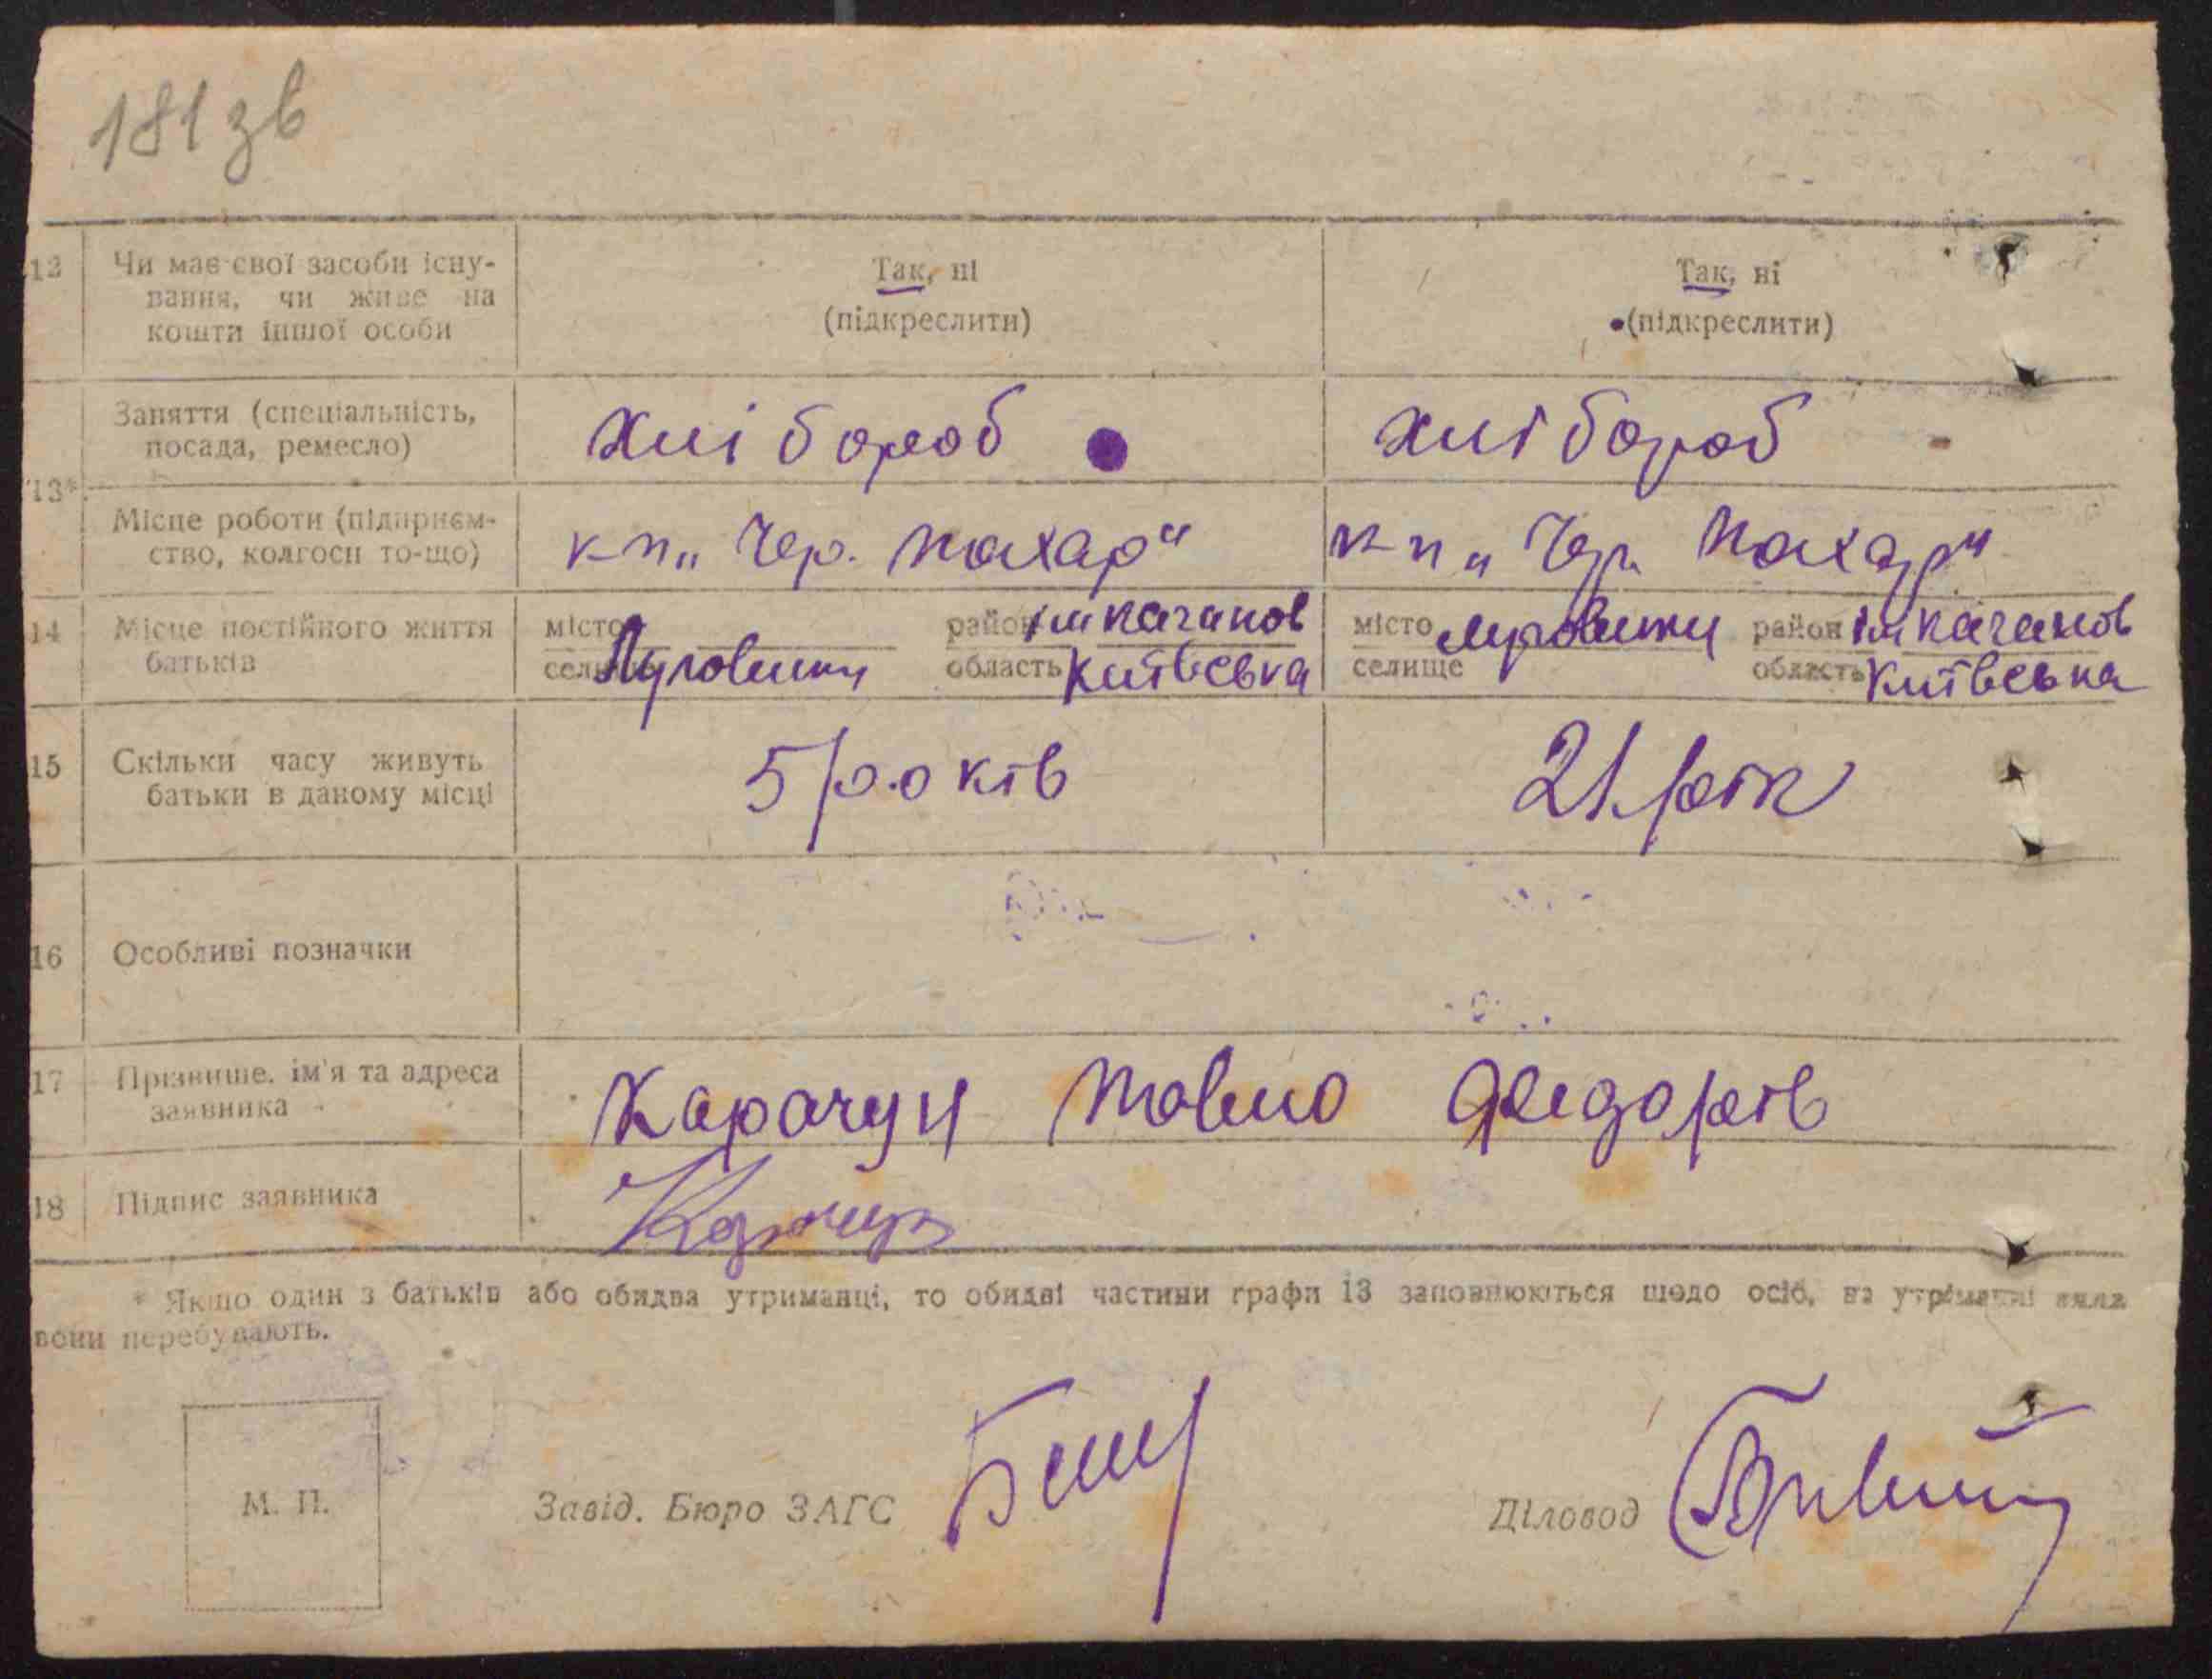 181 зв
12 Чи має свої засоби існу- Так, ні Так, ні
вання, чи живе на (підкреслити) (підкреслити)
кошти іншої особи
Заняття (спеціальність, хлібороб хлібороб
посада, ремесло)
13*
Місце роботи (підприєм- к-п „Чер. пахар" к-п „Чер. пахар"
ство, колгосп то-що)
14 Місце постійного життя місто район ім Каганов місто район ім Каганов
батьків селище область Київська селище область Київська
15 Скільки часу живуть 5 років 21 рік
батьки в даному місці
16 Особливі позначки
17 Прізвище, ім'я та адреса Карачун Павло Федорів
заявника
18 Підпис заявника
* Якщо один з батьків або обидва утриманці, то обидві частини графи 13 заповнюються щодо осіб, на утриманні яких
вони перебувають.
М. П. Завід. Бюро ЗАГС Діловод